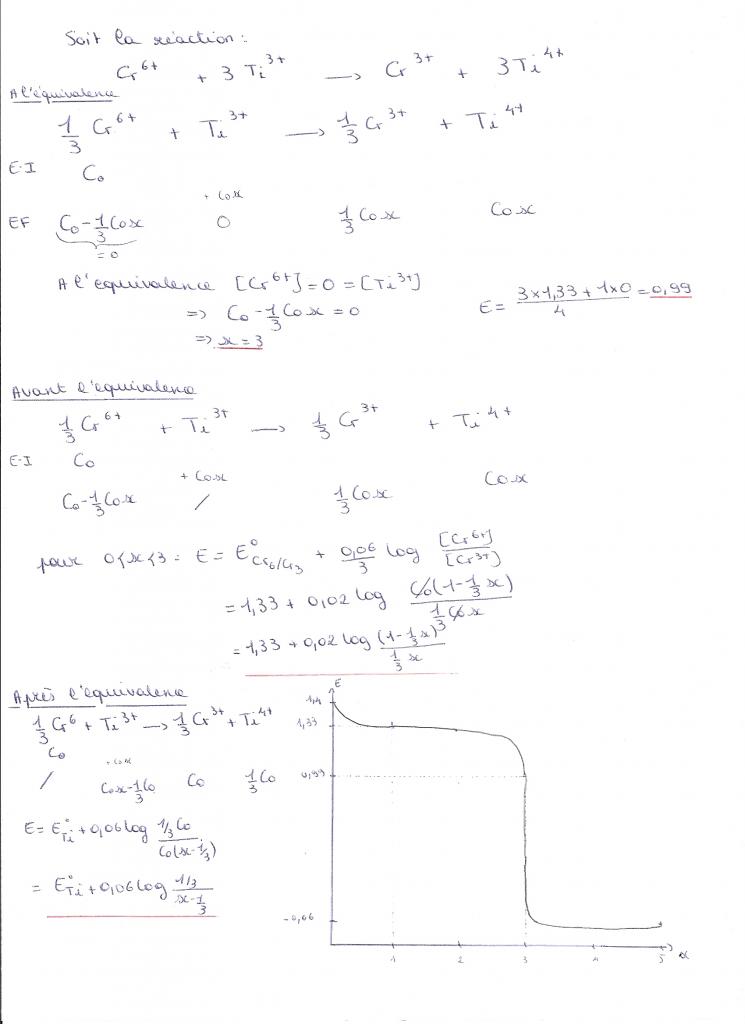 Soit la réaction:
Cr⁶⁺ + 3 Ti³⁺ → Cr³⁺ + 3Ti⁴⁺
A l'équivalence
1/3 Cr⁶⁺ + Ti³⁺ → 1/3 Cr³⁺ + Ti⁴⁺
E.I C₀
+ C₀x
EF C₀-1/3C₀x 0 1/3C₀x C₀x
=0
A l'équivalence [Cr⁶⁺]=0=[Ti³⁺]
=> C₀-1/3C₀x=0
=> x=3
E= (3x1,33+1x0)/4 = 0,99
Avant l'équivalence
1/3 Cr⁶⁺ + Ti³⁺ → 1/3 Cr³⁺ + Ti⁴⁺
E.I C₀
+ C₀x
C₀-1/3C₀x / 1/3C₀x C₀x
pour 0<x<3 : E = E°Cr₆/Cr₃ + 0,06/3 log [Cr⁶⁺]/[Cr³⁺]
= 1,33 + 0,02 log C₀(1-1/3x)/(1/3C₀x)
= 1,33 + 0,02 log (1-1/3x)/(1/3x)
Après l'équivalence
1/3 Cr⁶ + Ti³⁺ → 1/3 Cr³⁺ + Ti⁴⁺
C₀
+ C₀x
/ C₀x-1/3C₀ C₀ 1/3C₀
E= E°Ti + 0,06 log (1/3C₀)/(C₀(x-1/3))
= E°Ti + 0,06 log (1/3)/(x-1/3)
E
1,4
1,33
0,99
-0,06
1 2 3 4 5 x